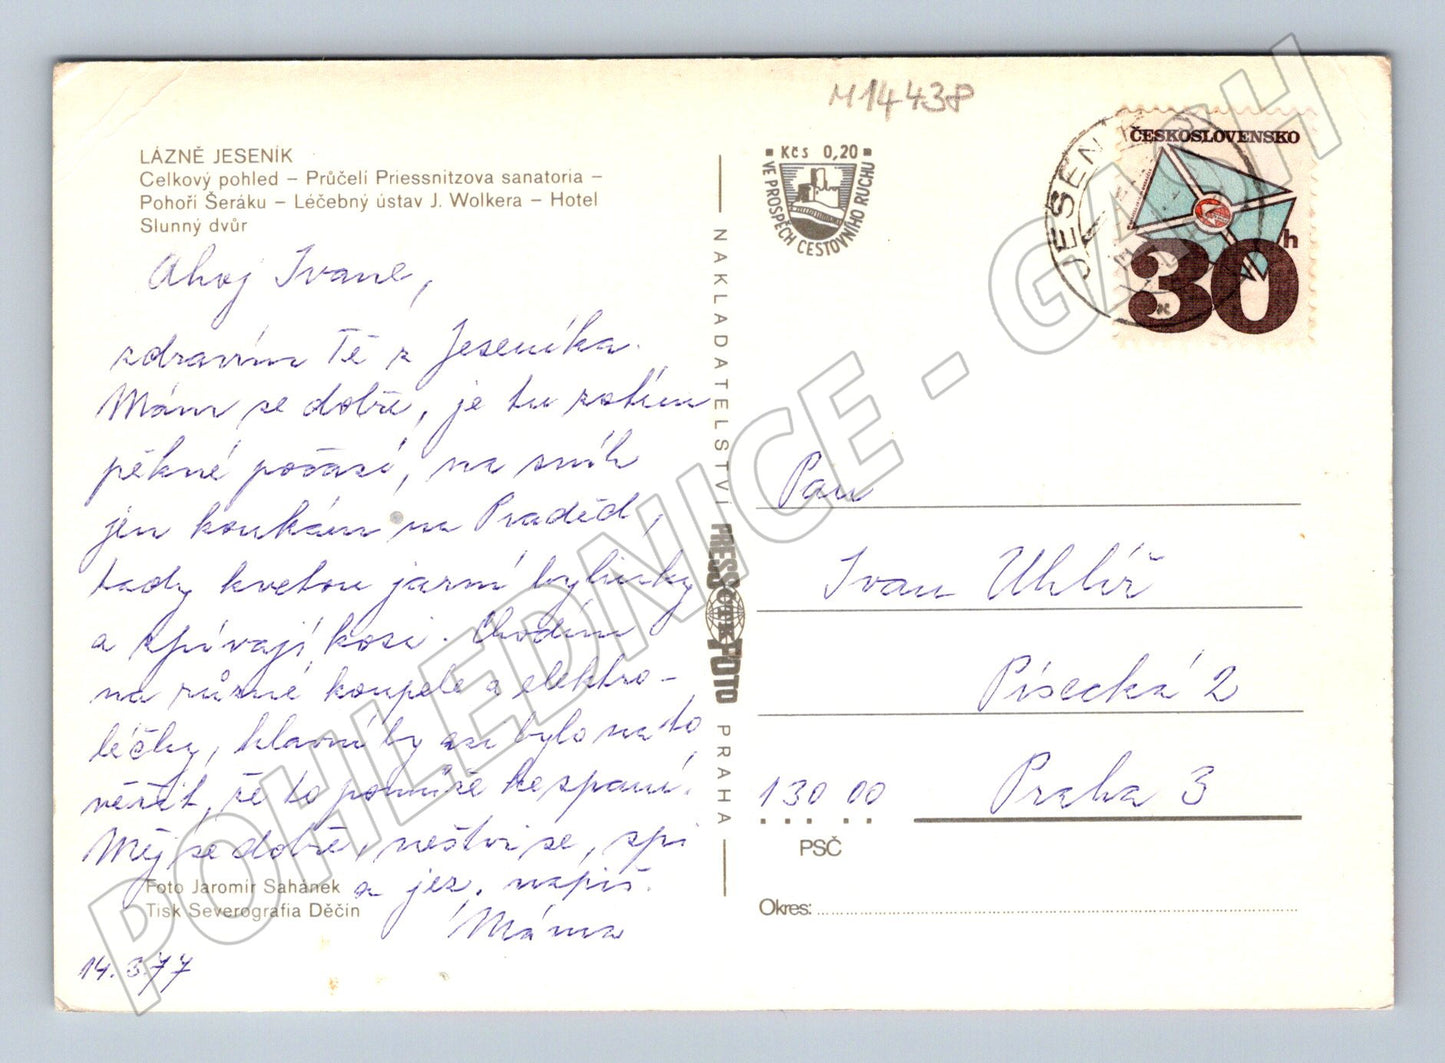 M14438
LÁZNĚ JESENÍK
Celkový pohled – Průčelí Priessnitzova sanatoria –
Pohoří Šeráku – Léčebný ústav J. Wolkera – Hotel
Slunný dvůr
Ahoj Ivane,
zdravím Tě z Jeseníka.
Mám se dobře, je tu zatím
pěkné počasí, na sníh
jen koukám na Praděd,
tady kvetou jarní bylinky
a zpívají kosi. Chodím
na různé koupele a elektro-
léčky, hlavní by asi bylo na to
věřit, že to pomůže ke spaní.
Měj se dobře, neštvi se, spi
a jez, napiš.
Máma
14.3.77
Foto Jaromír Sahánek
Tisk Severografia Děčín
NAKLADATELSTVÍ
PRESSFOTO
ČTK
PRAHA
Kčs 0,20
VE PROSPĚCH CESTOVNÍHO RUCHU
JESENÍ
ČESKOSLOVENSKO
30h
Pan
Ivan Uhlíř
Písecká 2
130 00 Praha 3
PSČ
Okres:
POHLEDNICE - GASH